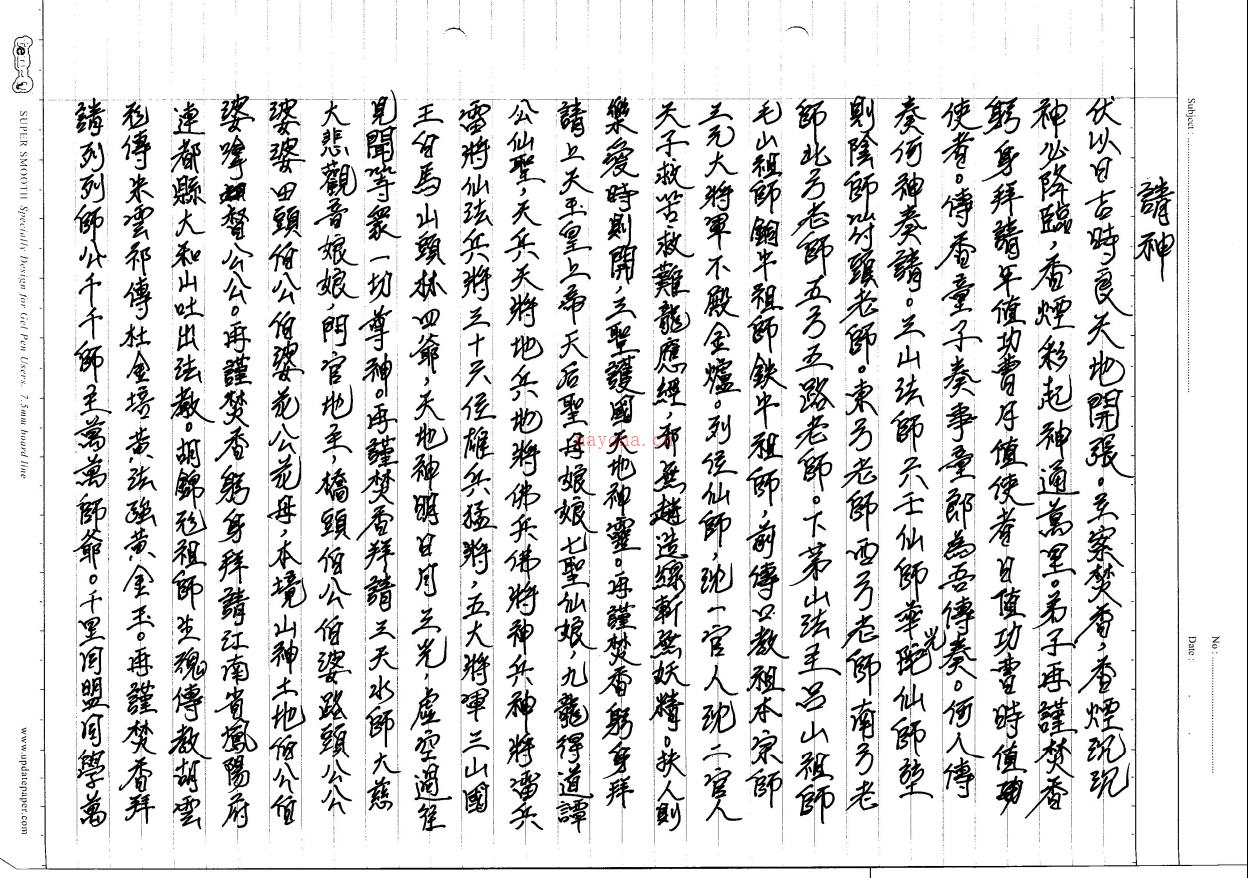 請神
伏以日吉時良天地開張。立案焚香，香煙沉沉
神必降臨，香煙彩起神通萬里。弟子再謹焚香
躬身拜請年值功曹月值使者日值功曹時值
使者。傳香童子奏事童郎為吾傳奏。何人傳
奏何神奏請。三山法師六壬仙師華光陀仙師
則陰師公竹頭老師。東方老師西方老師南方老
師北方老師五方五路老師。下茅山法主呂山祖師
毛山祖師銅牛祖師鉄牛祖師，前傳口教祖本宗師
三元大將軍不殿金爐。列位仙師，沈一官人沈二官人
天子救苦救難龍應經，邪無趙造線斬無妖精。扶人則
樂愛時則開，三聖護國天地神靈。再謹焚香躬身拜
請上天玉皇上帝天后聖母娘娘七聖仙娘九龍得道譚
公仙聖，天兵天將地兵地將佛兵佛將神兵神將雷兵
雷將仙法兵將三十六位雄兵猛將，五大將軍三山國
王伯馬山頭林四爺，天地神明日月三光，虛空過往
見聞等眾一切尊神。再謹焚香拜請三天水師大慈
大悲觀音娘娘，門官地主橋頭伯公伯婆路頭公公
婆婆田頭伯公伯婆花公花母，本境山神土地伯公伯
婆 督公公公。再謹焚香躬身拜請江南省鳳陽府
連都縣大和山吐出法教。胡錦彩祖師生魂傳教胡雲
彩傳朱雲祁傳杜金培黃法強黃金玉。再謹焚香拜
請列列師公千千師主萬萬師爺。千里同盟同學萬
Subject :
No :
Date :
SUPER SMOOTH Specially Design for Gel Pen Users. 7.5mm board line
www.updatepaper.com
nayona.cn